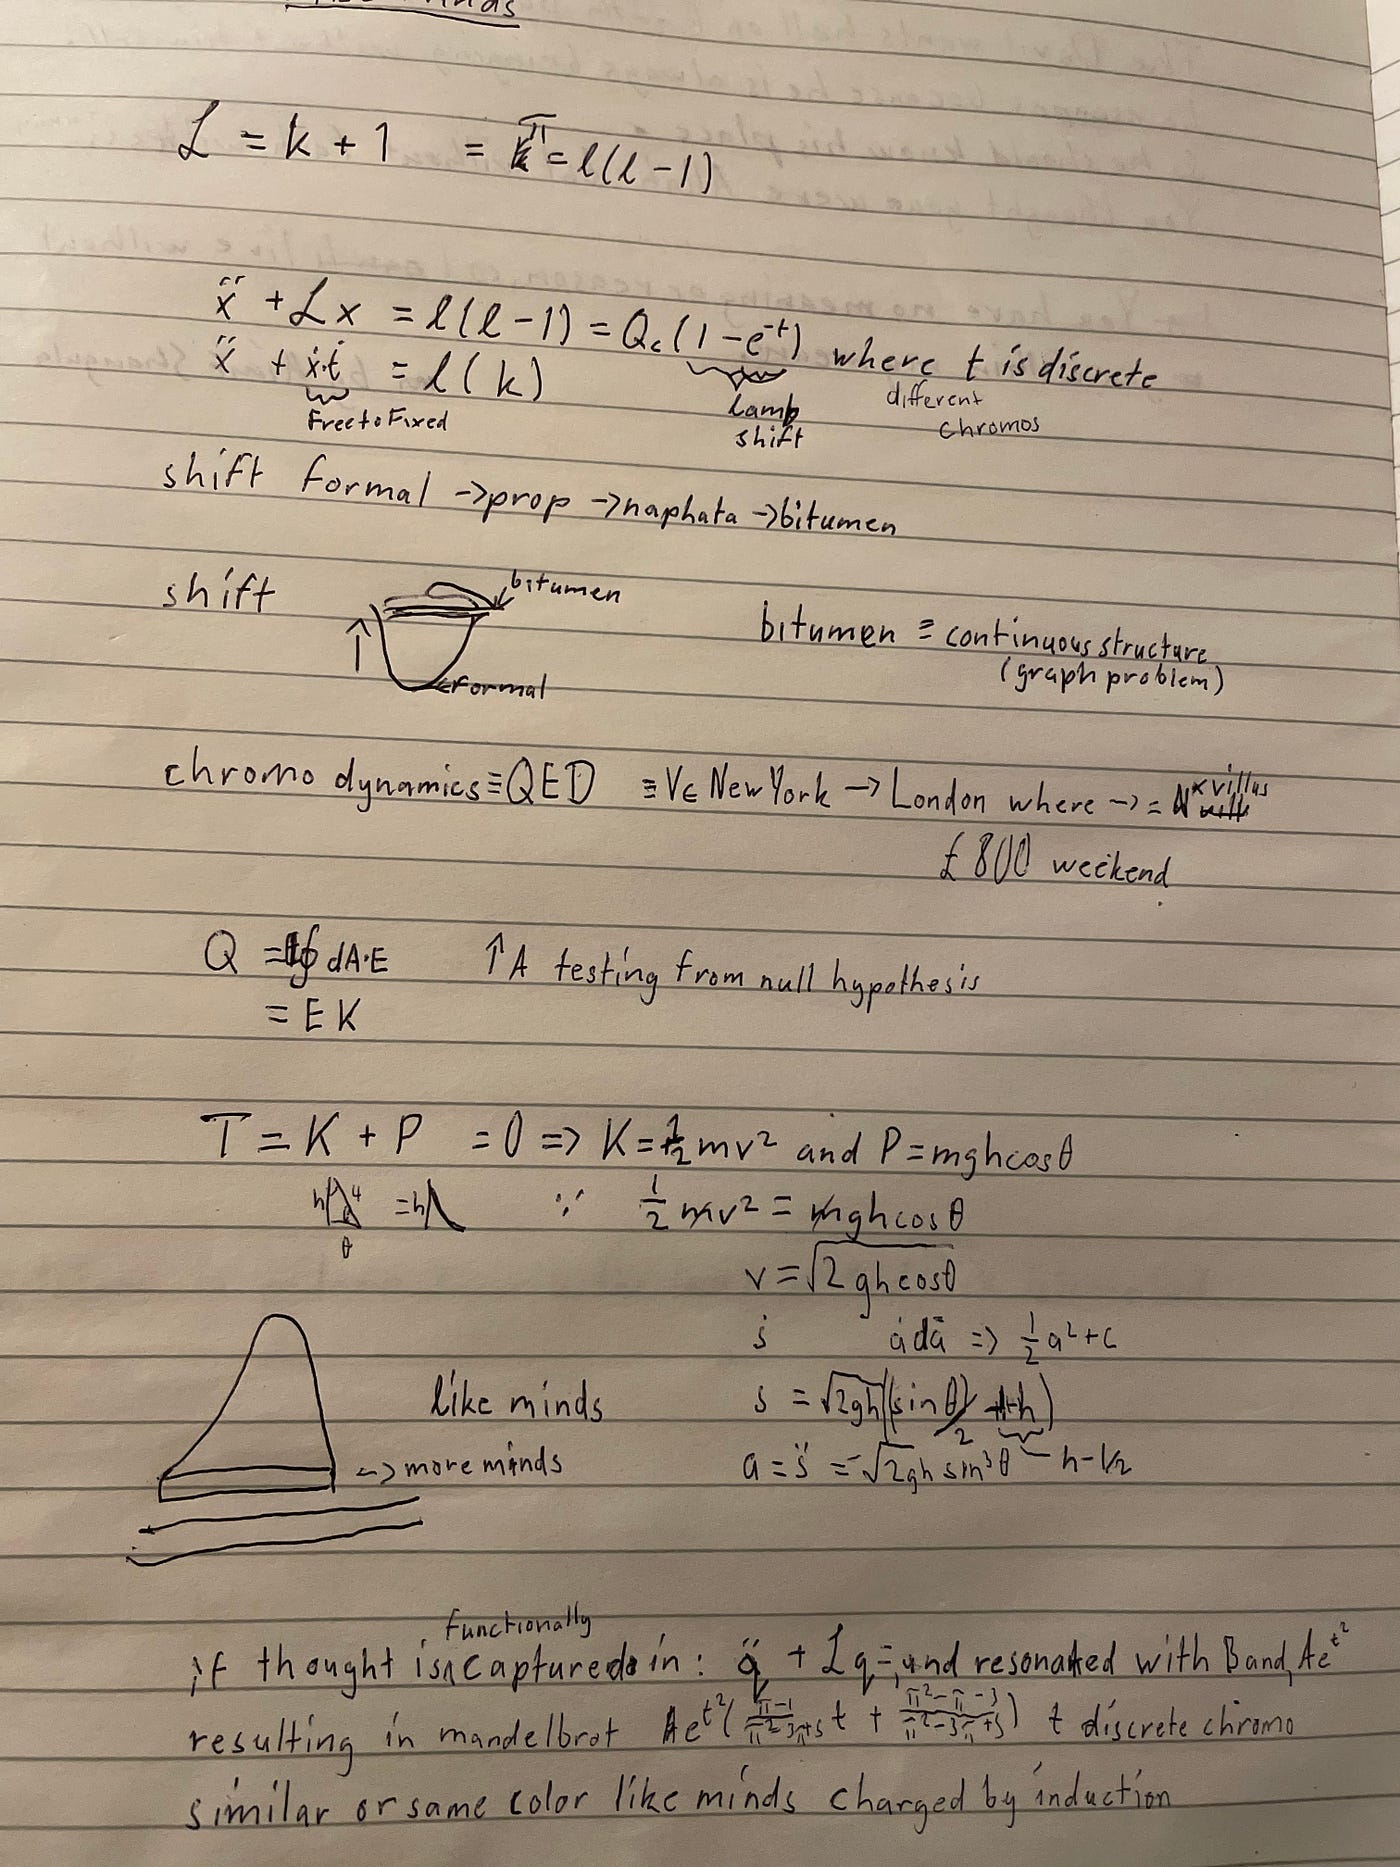 L = k + 1 = π = l(l - 1)
ẍ + Lx = l(l - 1) = Qc(1 - e^-t) where t is discrete
ẍ + ẋ·ṫ = l(k)
different
Free to Fixed
Lamb
chromos
shift
shift formal -> prop -> naphata -> bitumen
shift
bitumen
bitumen ≡ continuous structure
(graph problem)
formal
chromo dynamics ≡ QED ≡ V∈ New York -> London where -> = N^x villus
£800 weekend
Q = ∮ dA·E ↑A testing from null hypothesis
= E K
T = K + P = 0 => K = 1/2 mv² and P = mghcosθ
h 4 = h ∵ 1/2 mv² = mghcosθ
θ
v = √2ghcosθ
ṡ ȧdā => 1/2 a² + c
like minds
s = √2gh (sinθ)/2 + h)
-> more minds
a = s̈ = -√2gh sin³θ - h-1/2
Functionally
if thought is captured in: q̈ + Lq = , and resonated with Band, Ae^t²
resulting in mandelbrot Ae^t²(π-1/π²-3π+5 t + π²-π-3/π²-3π+5) t discrete chromo
similar or same color like minds charged by induction